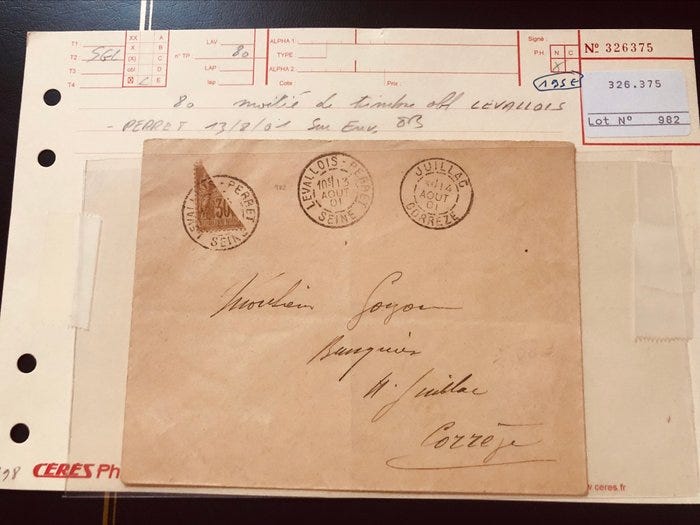 T1
T2
T3
T4
SGL
XX
X
(X)
obl
A
B
C
D
E
LAV
n° TP
lap
80
ALPHA 1
TYPE
ALPHA 2
Cote
Prix :
Signé :
P.H.
N
C
X
195 €
N° 326375
326.375
Lot N° 982
80 moitié de timbre obl LEVALLOIS
- PERRET 13/8/01 Sur Env. &B
LEVALLOIS - PERRET
SEINE
30
LEVALLOIS - PERRET
13
AOUT
01
SEINE
JUILLAC
14
AOUT
01
CORREZE
Monsieur Goyon
Banquier
à Juillac
Corrèze
CERES Ph
w.ceres.fr